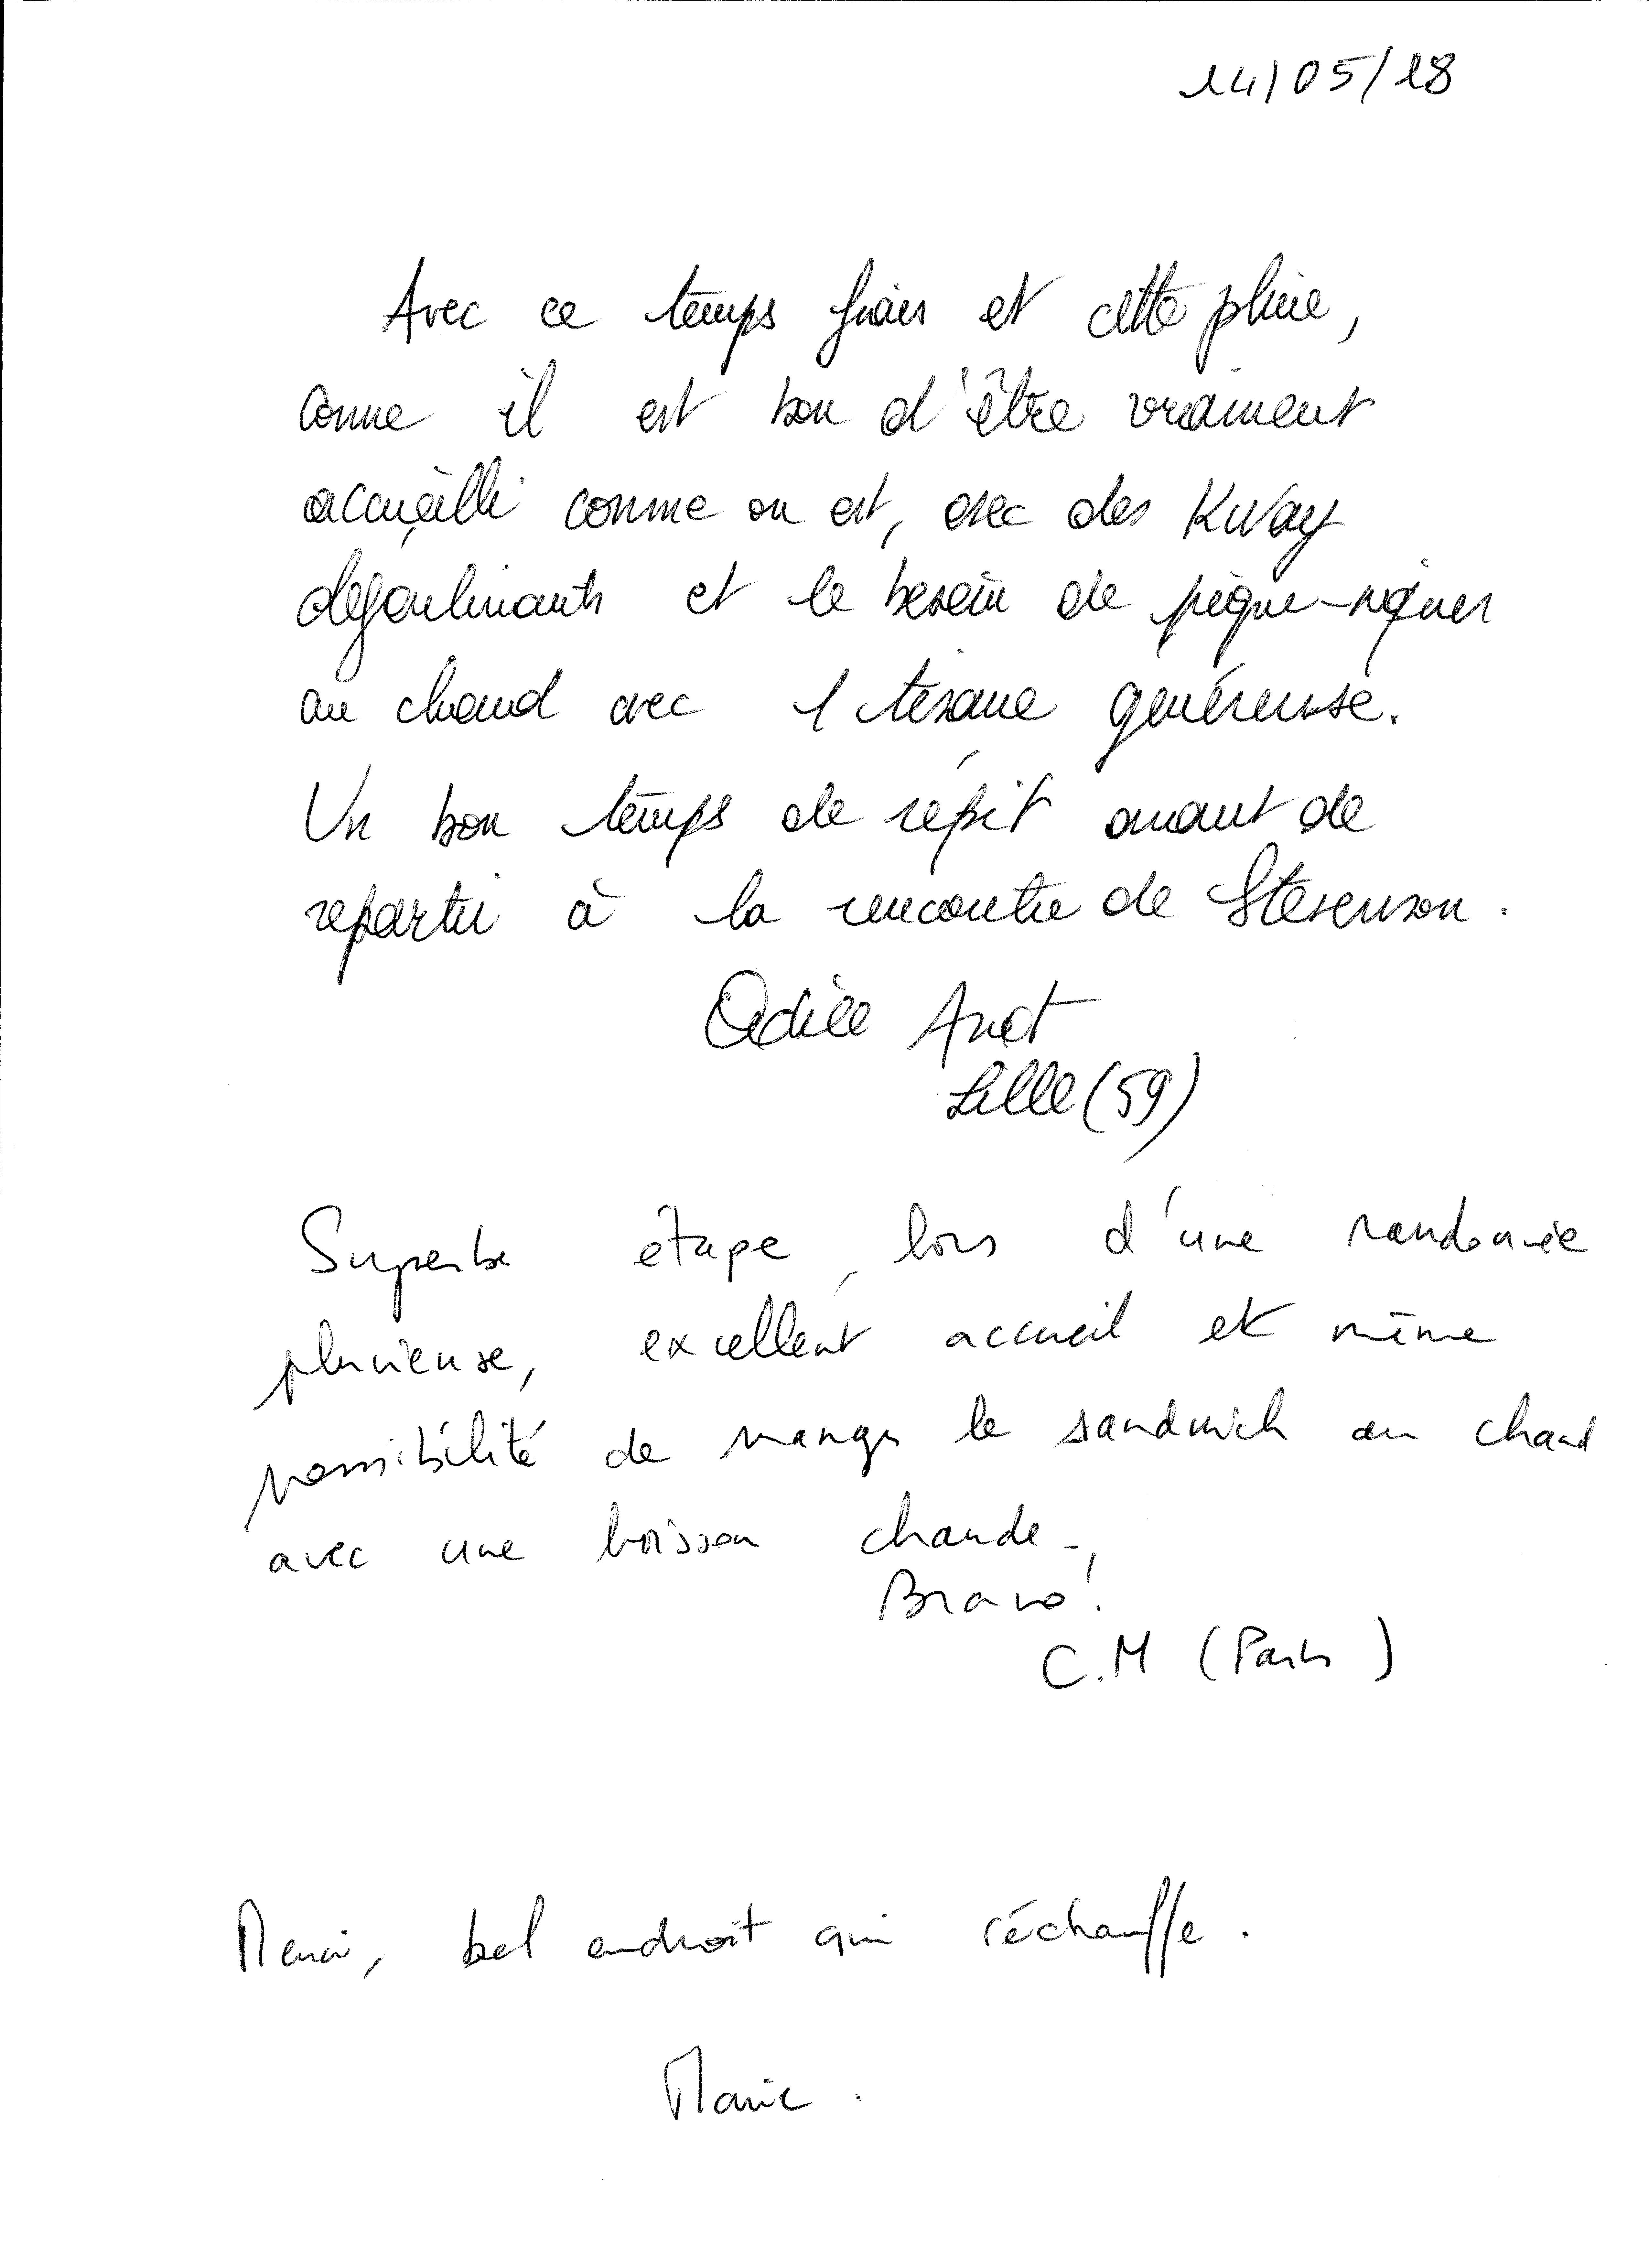 14/05/18
Avec ce temps frais et cette pluie,
comme il est bon d'être vraiment
accueilli comme on est, avec des Kway
dégoulinants et le besoin de pique-niquer
au chaud avec 1 tisane généreuse.
Un bon temps de répit avant de
repartir à la rencontre de Stevenson.
Odile
Lille (59)
Superbe étape, lors d'une randonnée
pluvieuse, excellent accueil et même
possibilité de manger le sandwich au chaud
avec une boisson chaude -
Bravo!
C.M (Paris)
Merci, bel endroit qui réchauffe.
Marie.